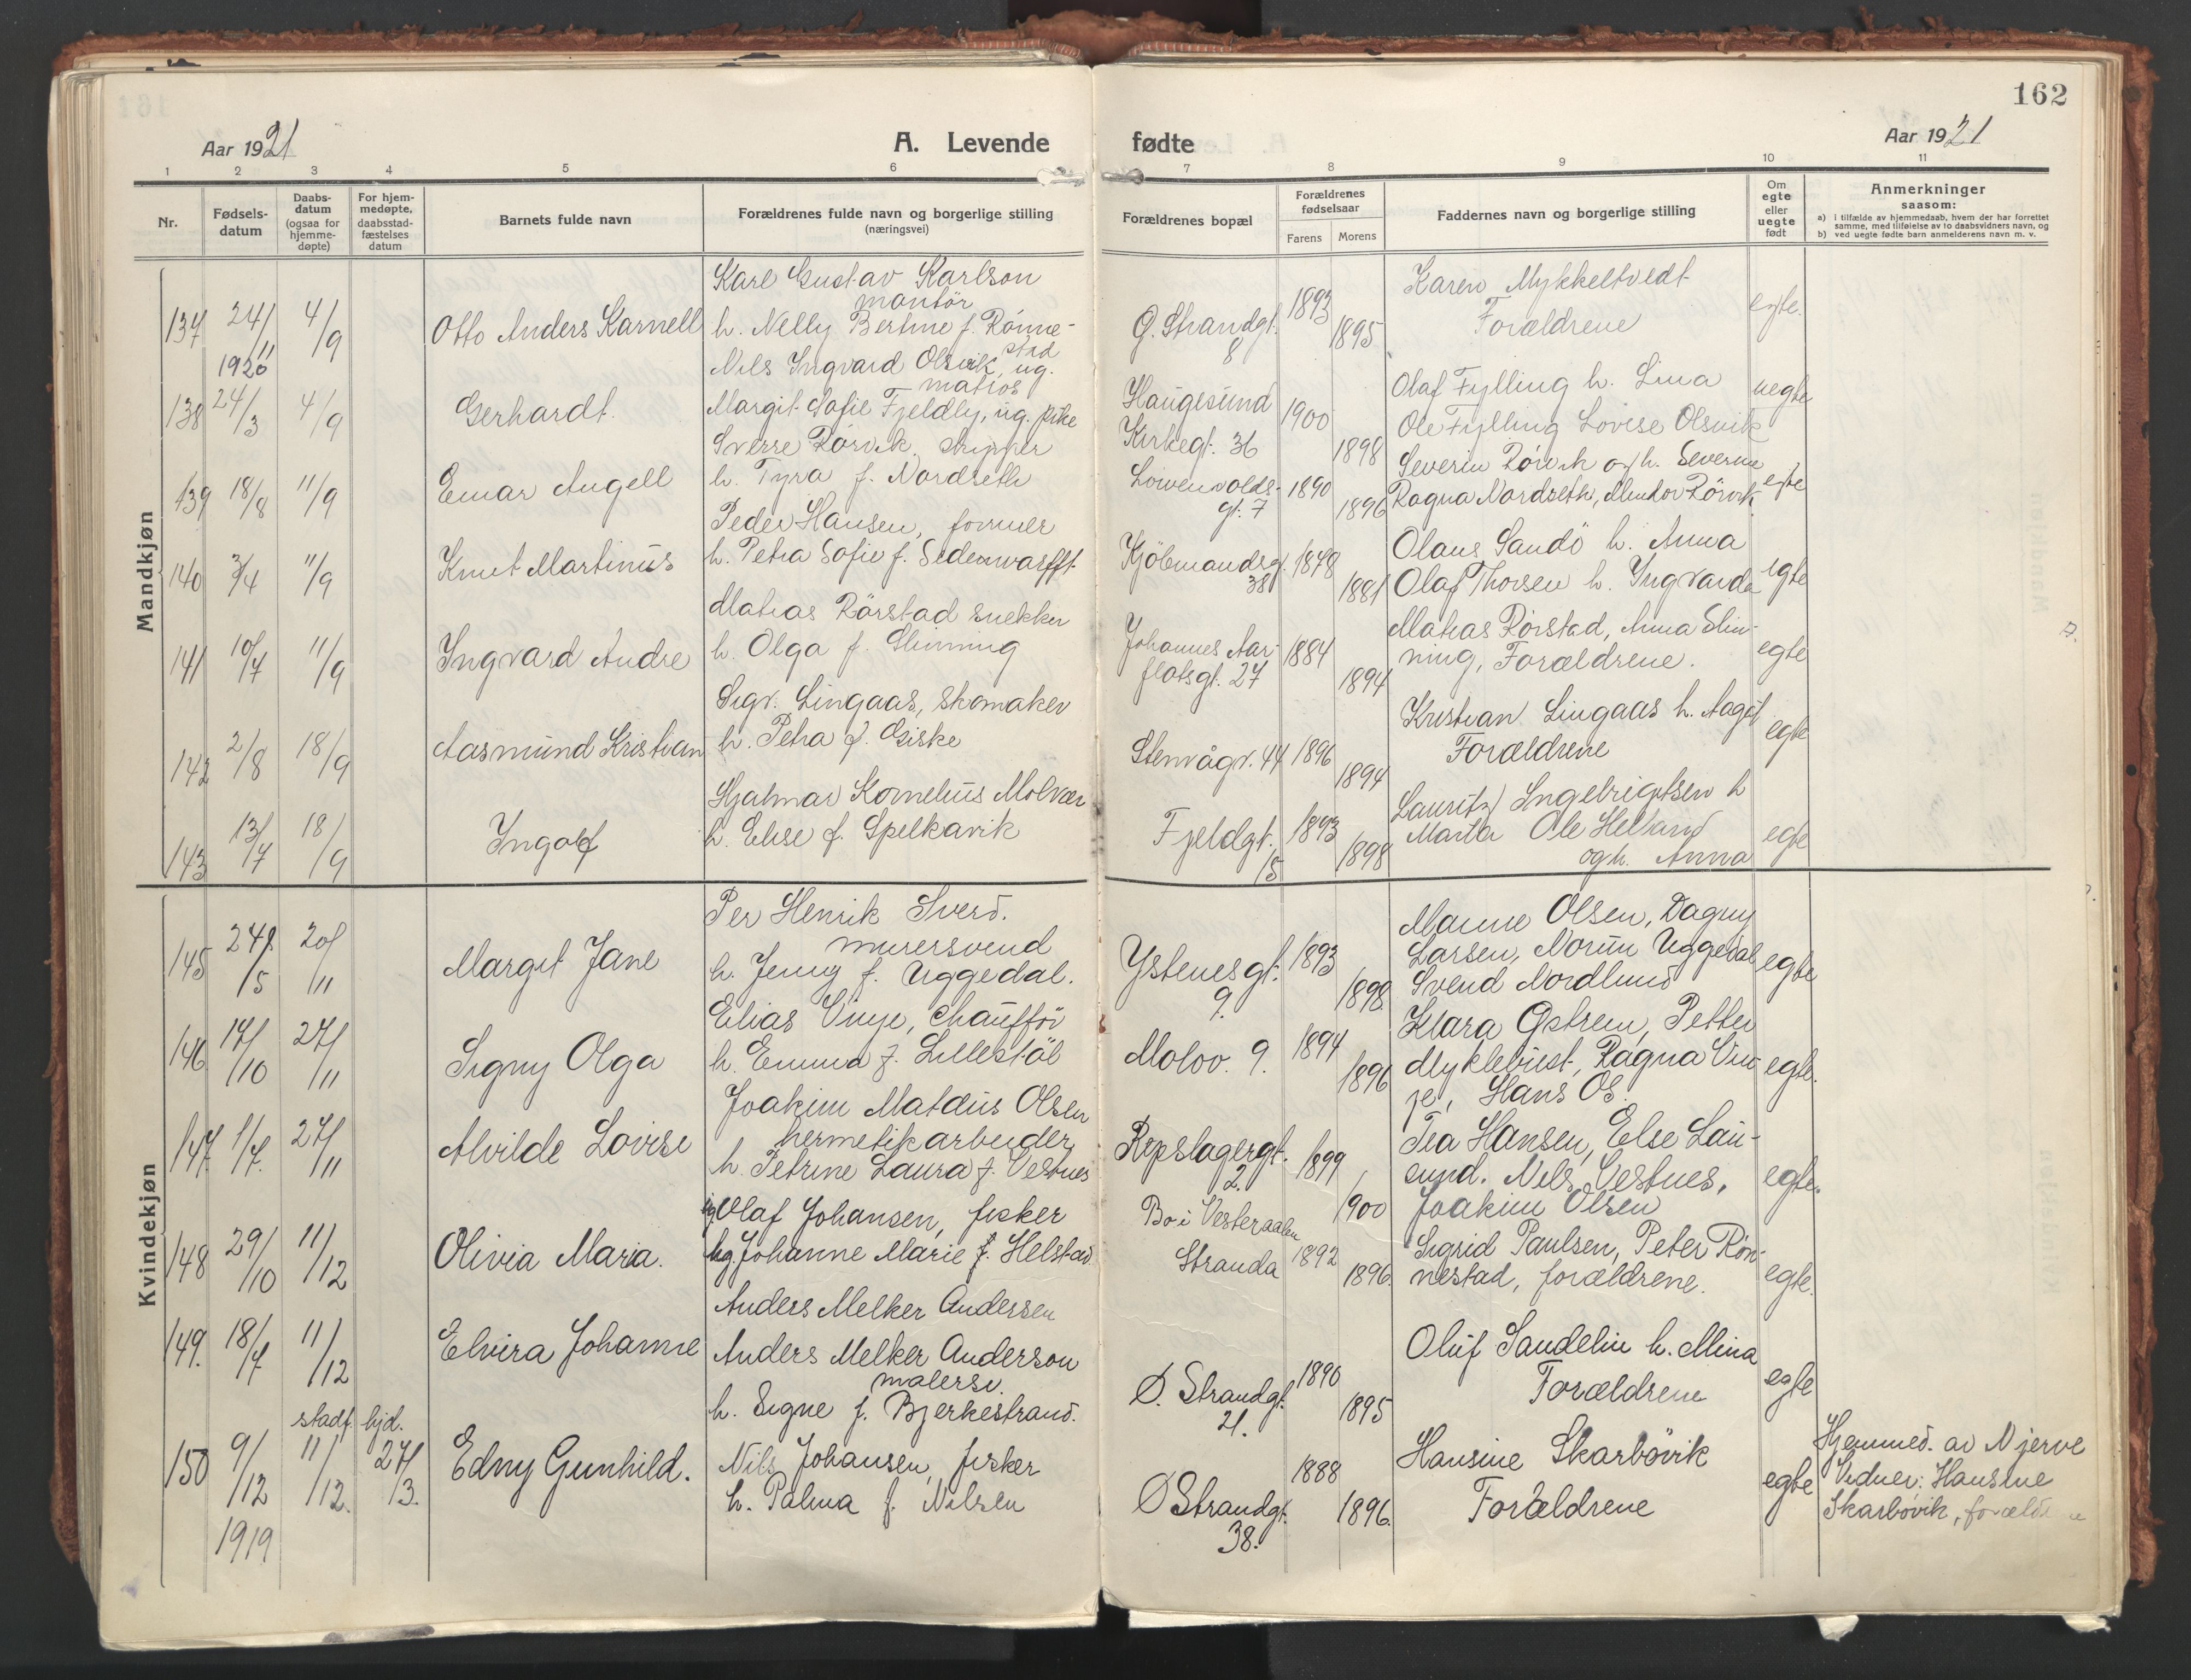 162
Aar 1921 A. Levende fødte Aar 1921
1 2 3 4 5 6 7 8 9 10 11
Nr. Fødselsdatum Daabsdatum (ogsaa for hjemmedøpte) For hjemmedøpte, daabsstadfæstelses datum Barnets fulde navn Forældrenes fulde navn og borgerlige stilling (næringsvei) Forældrenes bopæl Forældrenes fødselsaar Farens Morens Faddernes navn og borgerlige stilling Om egte eller uegte født Anmerkninger saasom:
a) i tilfælde av hjemmedaab, hvem der har forrettet samme, med tilføielse av to daabsvidners navn, og
b) ved uegte fødte barn anmelderens navn m. v.
Mandkjøn
Karl Gustav Karlson Karen Mykkeltvedt
montör
137 24/11 4/9 Otto Anders Karnell h. Nelly Bertine f. Rönne- G. Strandgt. 1893 1895 Forældrene egte.
1920 stad 8
Nils Ingvard Olsvik, ug. Olaf Fylling h. Lina
matros Haugesund
138 24/3 4/9 Gerhardt. Margit Sofie Fjeldly, ug. pike Kirkegt. 36 1900 1898 Ole Fylling Lovise Olsvik uegte
Sverre Rörvik, skipper Severin Rörvik og h. Severine
139 18/8 11/9 Einar Angell h. Tyra f. Nordseth Löwenvolds- 1890 1896 Ragna Nordseth, Mentor Rörvik egte
gt. 7
Peder Hansen, former Olaus Sandö h. Anna
140 3/4 11/9 Knut Martinus h. Petra Sofie f. Sedenwarfft Kjöbmandsg. 38 1878 1881 Olaf Thorsen h. Ingvarda egte
Matias Rörstad snekker Matias Rörstad, Anna Slin-
141 10/7 11/9 Ingvard Andre h. Olga f. Slinning Johannes Aar- 1884 1894 ning, Forældrene. egte
flotsgt. 27
Sigv. Lingaas, skomaker Kristian Lingaas h. Aagot
142 2/8 18/9 Aasmund Kristian h. Petra f. Giske Stenvågv. 44 1896 1894 Forældrene egte
Hjalmar Kornelius Molvær Lauritz Ingebrigtsen h
143 13/7 18/9 Ingolf h. Elise f. Spelkavik Fjeldgt. 15 1893 1898 Marta Ole Helland egte
og h. Anna
Kvindekjøn
Per Henrik Sverd. Manne Olsen, Dagny
murersvend
145 24/5 20/11 Margit Jane h. Jenny f. Uggedal. Ystenesgt. 9. 1893 1898 Larsen, Norun Uggedal egte
Svend Nordlund
Elias Vinje, Chaufför Klara Gstrem, Petter
146 17/10 27/11 Signy Olga h. Emma f. Lillestöl Molov. 9. 1894 1896 Myklebust, Ragna Vin- egte.
je, Hans Os.
Joakim Mateus Olsen Tea Hansen, Else Lau-
hermetikarbeider
147. 1/7. 27/11 Alvilde Lovise h. Petrine Laura f. Vestnes Repslagergt. 2. 1899 1900 sund. Nils Vestnes, egte.
Joakim Olsen
Olaf Johansen, fisker Bo i Vesteraalen Sigrid Paulsen, Peter Rön-
148 29/10 11/12 Olivia Maria. Johanne Marie f. Helstad. Stranda 1892 1896. nestad, forældrene. egte.
Anders Melker Andersen
149. 18/7 11/12 Elvira Johanne Anders Melker Anderson Oluf Sandelin h. Mina
malersv.
h. Signe f. Bjerkestrand. Ø. Strandgt. 21. 1890 1895 Forældrene egte
stadf. hjd.
150 9/12 11/12. 27/3. Edny Gunhild. Nils Johansen, fisker Hansine Skarbövik Hjemmed. av Njerve
1919 h. Palma f. Nilsen Ø Strandgt. 38. 1888 1896. Forældrene egte Vidner: Hansine
Skarbövik, foræld